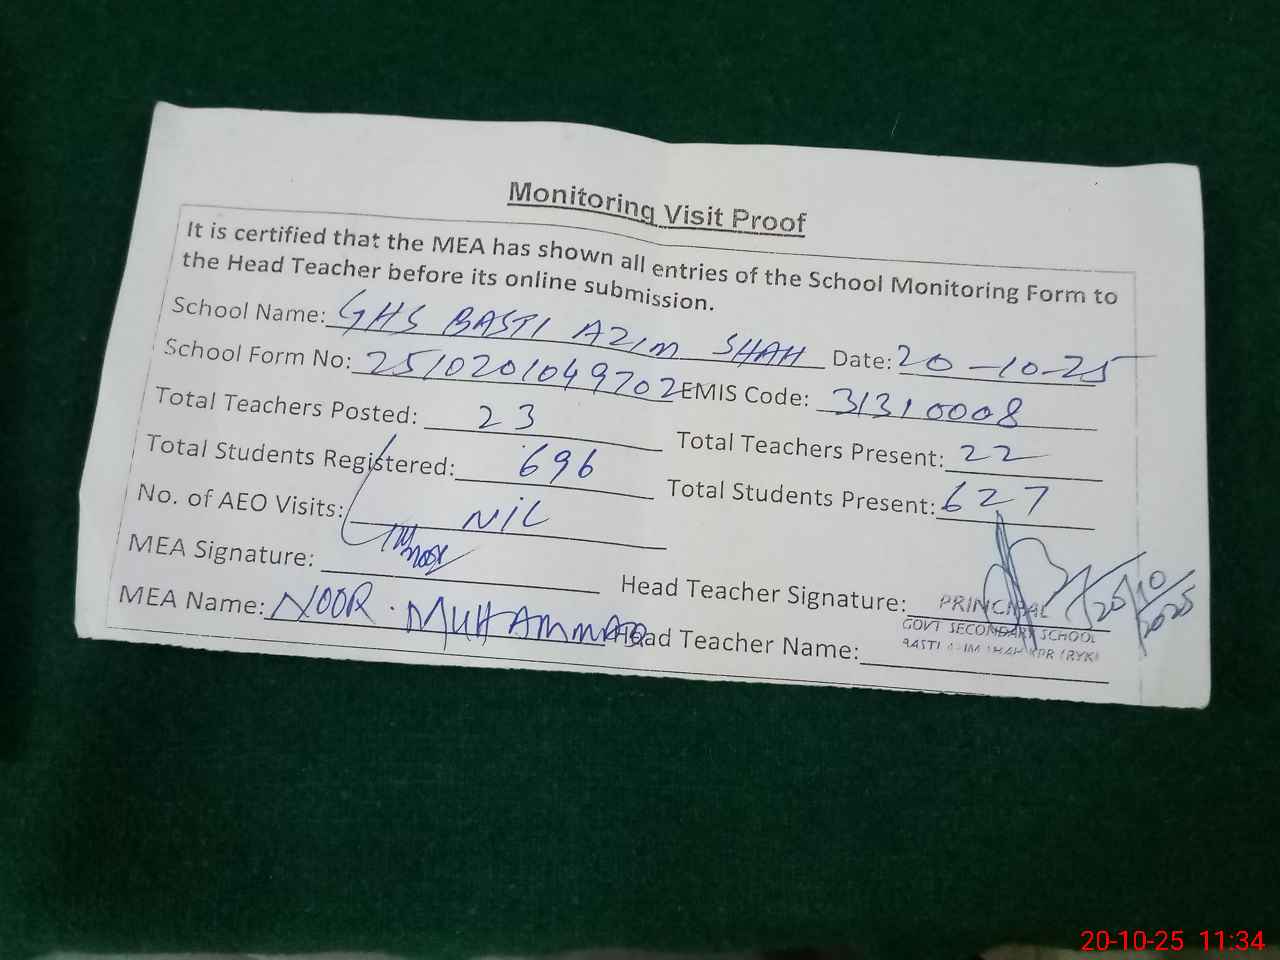 Monitoring Visit Proof
It is certified that the MEA has shown all entries of the School Monitoring Form to
the Head Teacher before its online submission.
School Name: GHS BASTI AZIM SHAH Date: 20-10-25
School Form No: 2510201049702 EMIS Code: 31310008
Total Teachers Posted: 23 Total Teachers Present: 22
Total Students Registered: 696 Total Students Present: 627
No. of AEO Visits: NIL
MEA Signature: Head Teacher Signature:
PRINCIPAL
GOVT SECONDARY SCHOOL
BASTI SHAH RPR (RYK)
20/10/2025
MEA Name: NOOR MUHAMMAD Head Teacher Name:
20-10-25 11:34